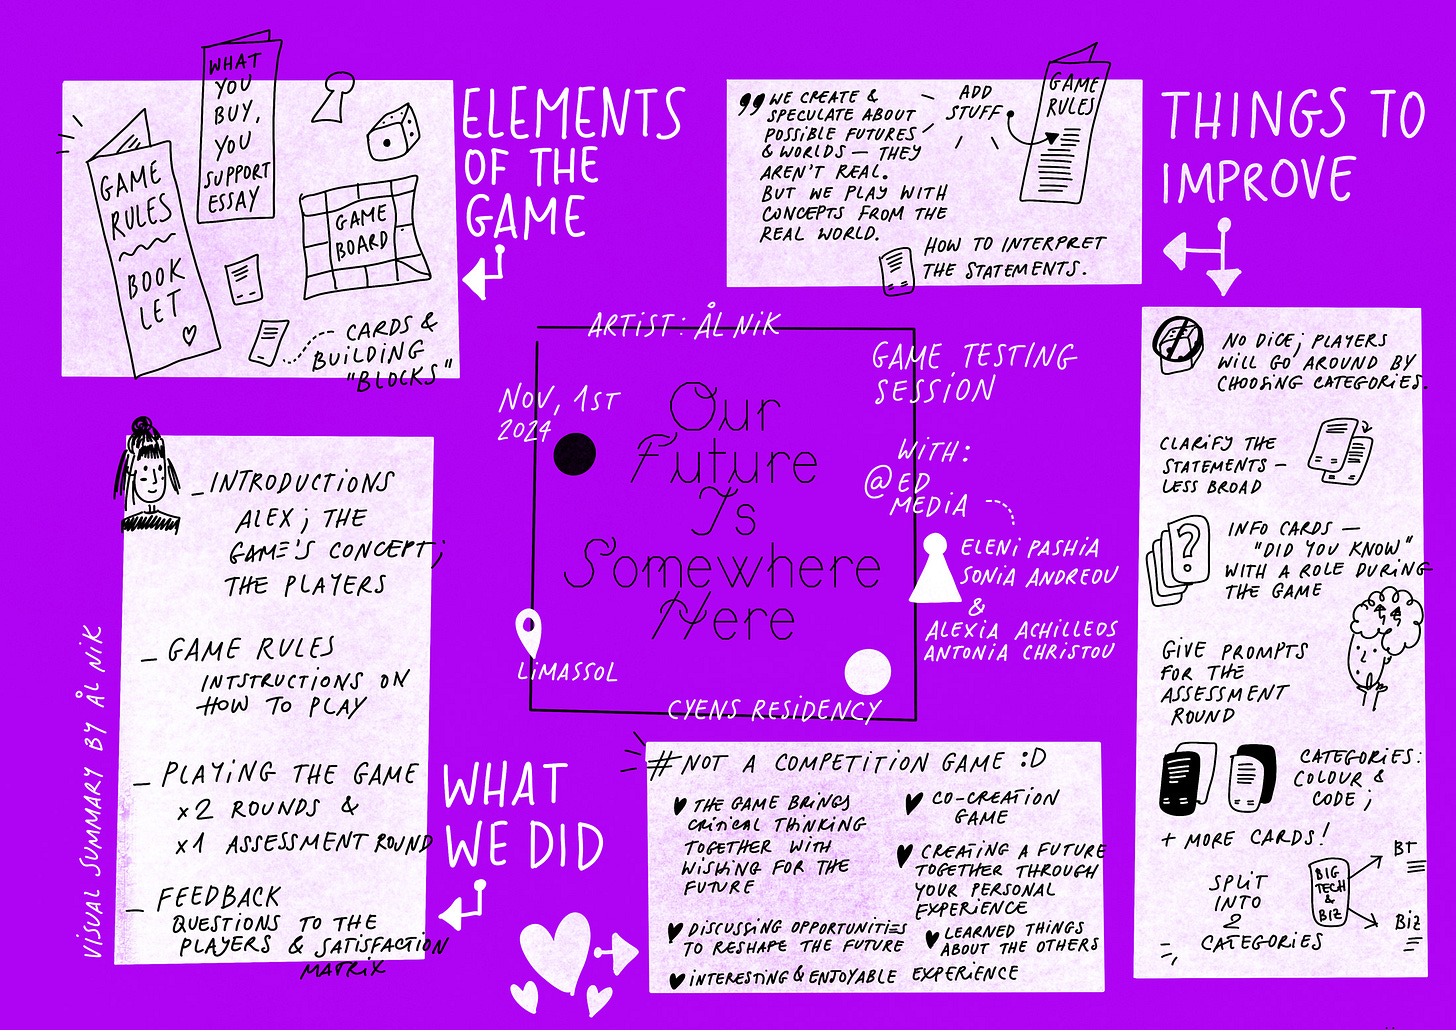 WHAT
YOU
BUY,
YOU
SUPPORT
ESSAY
GAME
RULES
BOOK
LET
GAME
BOARD
CARDS &
BUILDING
"BLOCKS"
ELEMENTS
OF THE
GAME
,, WE CREATE &
SPECULATE ABOUT
POSSIBLE FUTURES
& WORLDS — THEY
AREN'T REAL.
BUT WE PLAY WITH
CONCEPTS FROM THE
REAL WORLD.
ADD
STUFF
GAME
RULES
HOW TO INTERPRET
THE STATEMENTS.
THINGS TO
IMPROVE
NO DICE; PLAYERS
WILL GO AROUND BY
CHOOSING CATEGORIES.
CLARIFY THE
STATEMENTS –
LESS BROAD
INFO CARDS —
"DID YOU KNOW"
WITH A ROLE DURING
THE GAME
?
GIVE PROMPTS
FOR THE
ASSESSMENT
ROUND
CATEGORIES:
COLOUR &
CODE;
+ MORE CARDS!
SPLIT
INTO
2
CATEGORIES
BIG
TECH
&
BIZ
BT
BIZ
ARTIST: ÅL NIK
NOV, 1ST
2024
Our
Future
Is
Somewhere
Here
GAME TESTING
SESSION
WITH:
@ED
MEDIA
ELENI PASHIA
SONIA ANDREOU
&
ALEXIA ACHILLEOS
ANTONIA CHRISTOU
LIMASSOL
CYENS RESIDENCY
– INTRODUCTIONS
ALEX; THE
GAME'S CONCEPT;
THE PLAYERS
– GAME RULES
INTSTRUCTIONS ON
HOW TO PLAY
– PLAYING THE GAME
x2 ROUNDS &
x1 ASSESSMENT ROUND
– FEEDBACK
QUESTIONS TO THE
PLAYERS & SATISFACTION
MATRIX
VISUAL SUMMARY BY ÅL NIK
WHAT
WE DID
#NOT A COMPETITION GAME :D
THE GAME BRINGS
CRITICAL THINKING
TOGETHER WITH
WISHING FOR THE
FUTURE
DISCUSSING OPPORTUNITIES
TO RESHAPE THE FUTURE
INTERESTING & ENJOYABLE EXPERIENCE
CO-CREATION
GAME
CREATING A FUTURE
TOGETHER THROUGH
YOUR PERSONAL
EXPERIENCE
LEARNED THINGS
ABOUT THE OTHERS